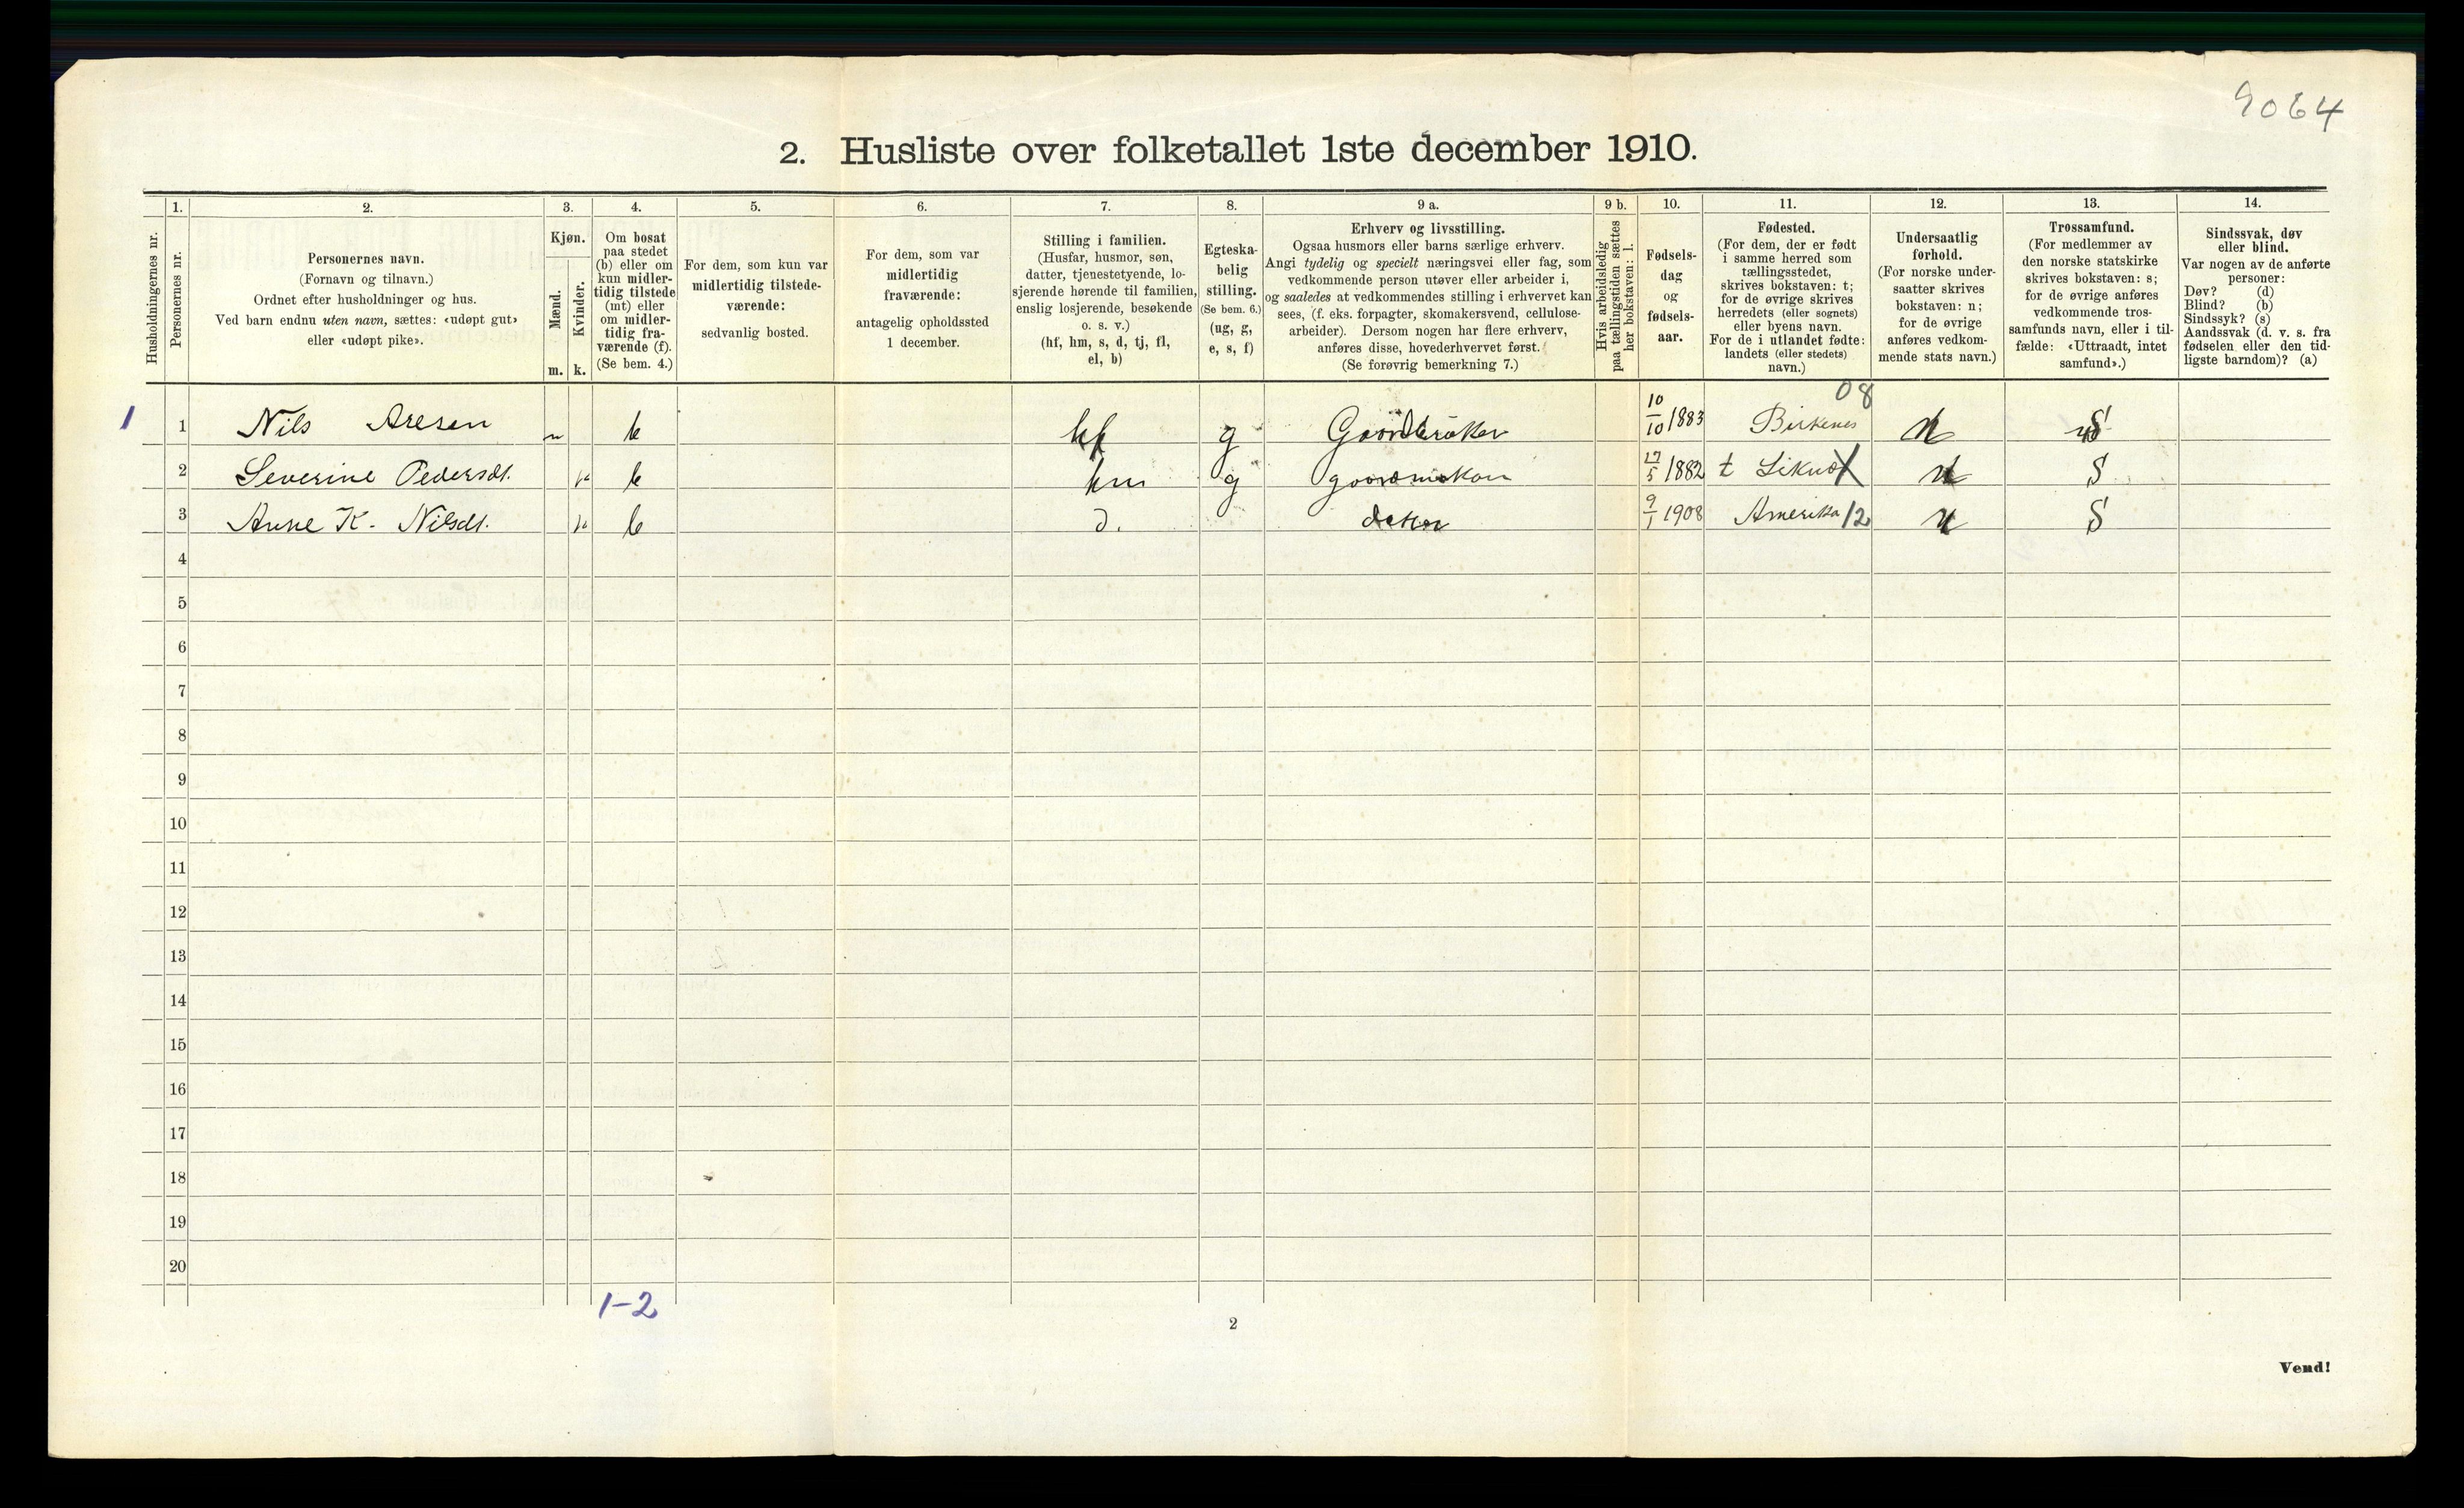 9064
2. Husliste over folketallet 1ste december 1910.
Husholdningernes nr.
1.
Personernes nr.
2.
Personernes navn.
(Fornavn og tilnavn.)
Ordnet efter husholdninger og hus.
Ved barn endnu uten navn, sættes: «udøpt gut»
eller «udøpt pike».
3.
Kjøn.
Mænd.
Kvinder.
m. k.
4.
Om bosat
paa stedet
(b) eller om
kun midler-
tidig tilstede
(mt) eller
om midler-
tidig fra-
værende (f).
(Se bem. 4.)
5.
For dem, som kun var
midlertidig tilstede-
værende:
sedvanlig bosted.
6.
For dem, som var
midlertidig
fraværende:
antagelig opholdssted
1 december.
7.
Stilling i familien.
(Husfar, husmor, søn,
datter, tjenestetyende, lo-
sjerende hørende til familien,
enslig losjerende, besøkende
o. s. v.)
(hf, hm, s, d, tj, fl,
el, b)
8.
Egteska-
belig
stilling.
(Se bem. 6.)
(ug, g,
e, s, f)
9 a.
Erhverv og livsstilling.
Ogsaa husmors eller barns særlige erhverv.
Angi tydelig og specielt næringsvei eller fag, som
vedkommende person utøver eller arbeider i,
og saaledes at vedkommendes stilling i erhvervet kan
sees, (f. eks. forpagter, skomakersvend, cellulose-
arbeider). Dersom nogen har flere erhverv,
anføres disse, hovederhvervet først.
(Se forøvrig bemerkning 7.)
9 b.
Hvis arbeidsledig
paa tællingstiden sættes
her bokstaven: l.
10.
Fødsels-
dag
og
fødsels-
aar.
11.
Fødested.
(For dem, der er født
i samme herred som
tællingsstedet,
skrives bokstaven: t;
for de øvrige skrives
herredets (eller sognets)
eller byens navn.
For de i utlandet fødte:
landets (eller stedets)
navn.)
12.
Undersaatlig
forhold.
(For norske under-
saatter skrives
bokstaven: n;
for de øvrige
anføres vedkom-
mende stats navn.)
13.
Trossamfund.
(For medlemmer av
den norske statskirke
skrives bokstaven: s;
for de øvrige anføres
vedkommende tros-
samfunds navn, eller i til-
fælde: «Uttraadt, intet
samfund».)
14.
Sindssvak, døv
eller blind.
Var nogen av de anførte
personer:
Døv? (d)
Blind? (b)
Sindssyk? (s)
Aandssvak (d. v. s. fra
fødselen eller den tid-
ligste barndom)? (a)
08
1 1 Nils Aresen m b hf g Gardbruker 10/10 1883 Birkenes n S
2 Severine Pedersdt. k b hm g gardmskon 17/5 1882 t Liknes X n S
3 Anne K. Nilsdt. k b d. 9/1 1908 Amerika 12 n S
4
5
6
7
8
9
10
11
12
13
14
15
16
17
18
19
20
1-2
2
Vend!